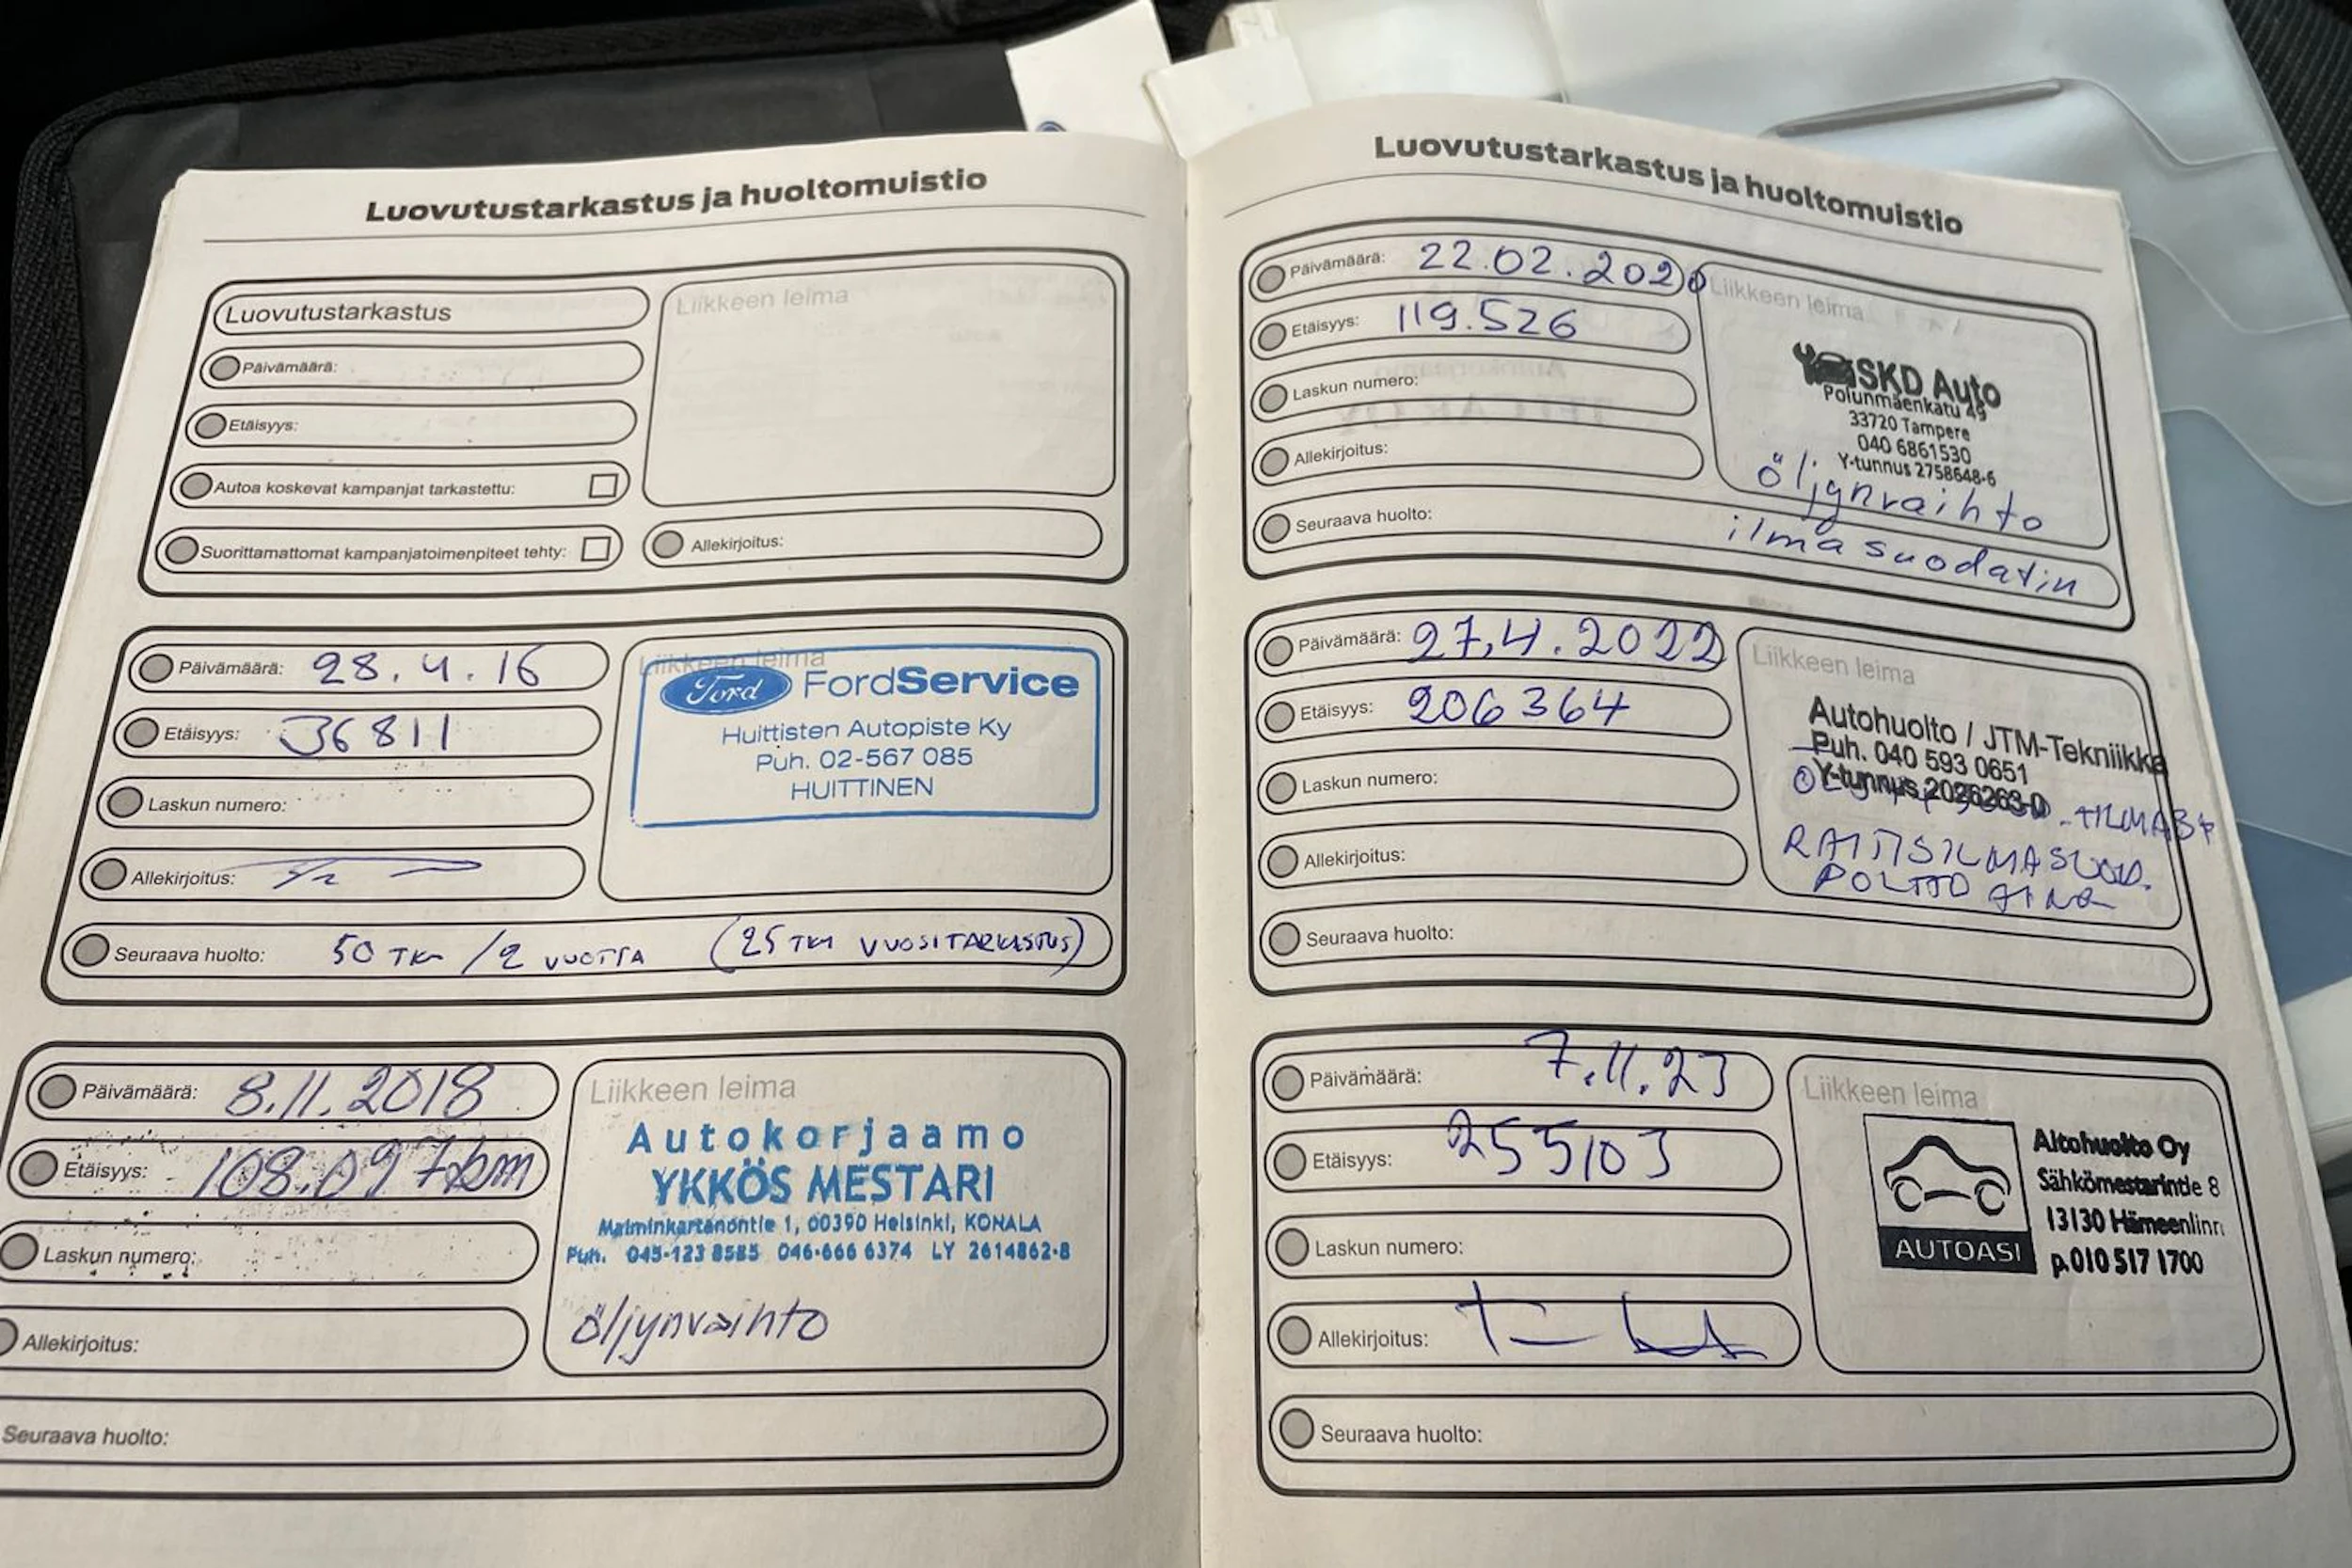 Luovutustarkastus ja huoltomuistio
Luovutustarkastus
Liikkeen leima
Päivämäärä:
Etäisyys:
Autoa koskevat kampanjat tarkastettu:
Suorittamattomat kampanjatoimenpiteet tehty:
Allekirjoitus:
Päivämäärä: 28.4.16
Etäisyys: 36811
Laskun numero:
Allekirjoitus:
Liikkeen leima
Ford FordService
Huittisten Autopiste Ky
Puh. 02-567 085
HUITTINEN
Seuraava huolto: 50 TKM /2 VUOTTA (25 TKM VUOSITARKASTUS)
Päivämäärä: 8.11.2018
Etäisyys: 108.097km
Laskun numero:
Allekirjoitus:
Liikkeen leima
Autokorjaamo
YKKÖS MESTARI
Malminkartanontie 1, 00390 Helsinki, KONALA
Puh. 045-123 8585 046-666 6374 LY 2614862-8
öljynvaihto
Seuraava huolto:
Luovutustarkastus ja huoltomuistio
Päivämäärä: 22.02.2020
Etäisyys: 119.526
Laskun numero:
Allekirjoitus:
Liikkeen leima
SKD Auto
Polunmäenkatu 49
33720 Tampere
040 6861530
Y-tunnus 2758648-6
öljynvaihto
ilmasuodatin
Seuraava huolto:
Päivämäärä: 27.4.2022
Etäisyys: 206364
Laskun numero:
Allekirjoitus:
Liikkeen leima
Autohuolto / JTM-Tekniikka
Puh. 040 593 0651
Y-tunnus 2026263-0
RAITISILMASUOD.
POLTTOAINE
Seuraava huolto:
Päivämäärä: 7.11.23
Etäisyys: 255103
Laskun numero:
Allekirjoitus:
Liikkeen leima
AUTOASI
Aitohuolto Oy
Sähkömestarintie 8
13130 Hämeenlinn
p.010 517 1700
Seuraava huolto: